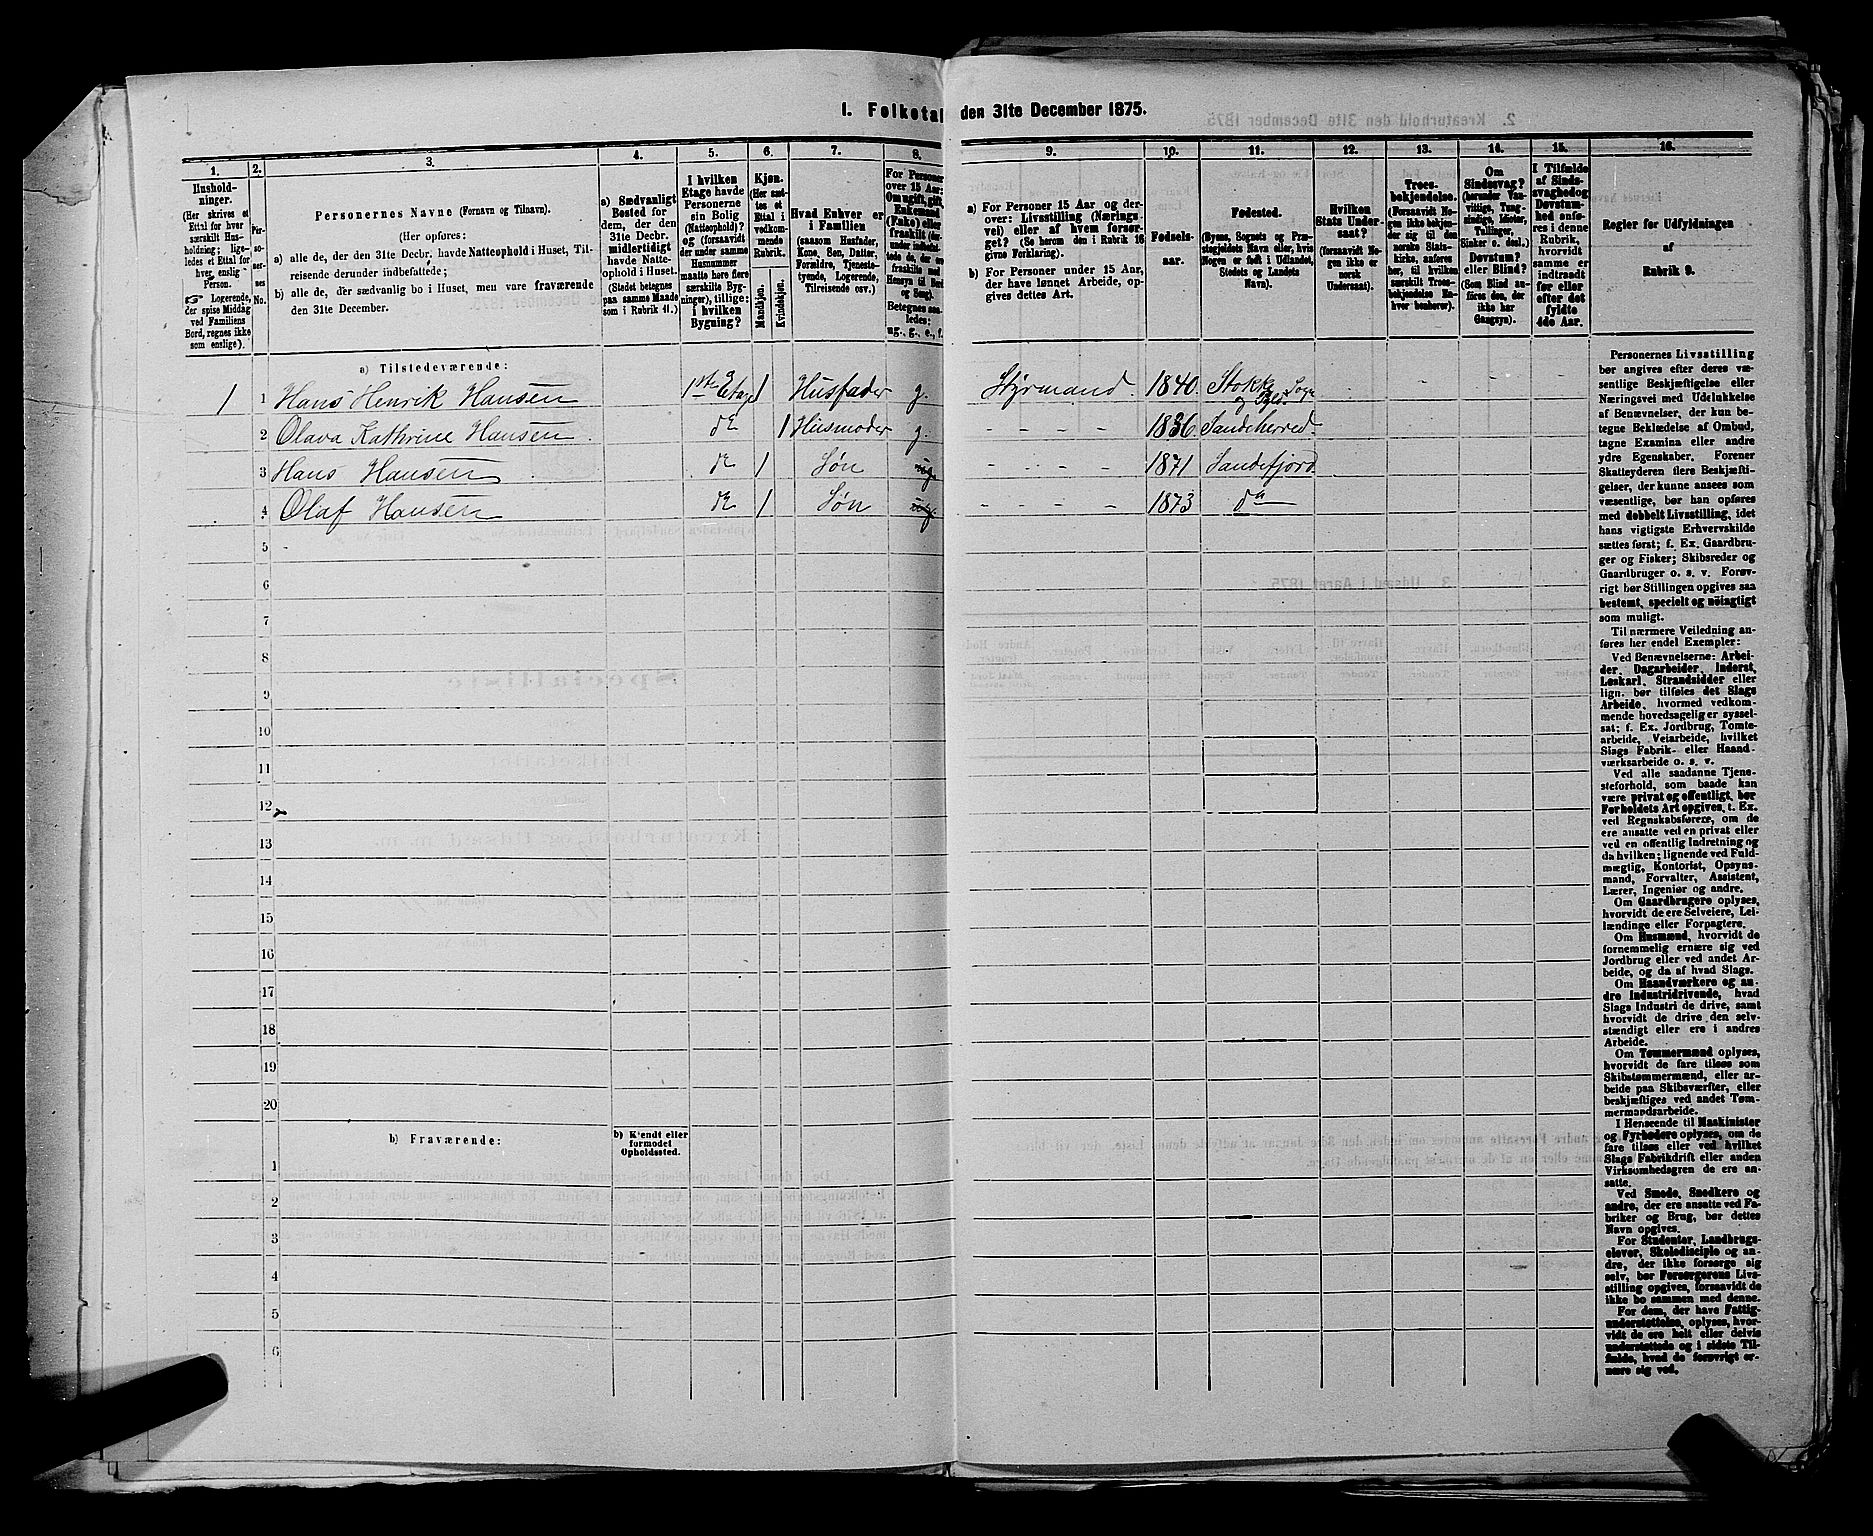 1. Folketal den 31te December 1875.
1. 2. 3. 4. 5. 6. 7. 8. 9. 10. 11. 12. 13. 14. 15. 16.
Hushold-
ninger.
(Her skrives et
Ettal for hver
særskilt Hus-
holdning; lige-
ledes et Ettal for
hver enslig
Person.
☞ Logerende,
der spise Middag
ved Familiens
Bord, regnes ikke
som enslige).
Per-
so-
ner-
nes
No.
Personernes Navne (Fornavn og Tilnavn).
(Her opføres:
a) alle de, der den 31te Decbr. havde Natteophold i Huset, Til-
reisende derunder indbefattede;
b) alle de, der sædvanlig bo i Huset, men vare fraværende
den 31te December.
a) Sædvanligt
Bosted for
dem, der den
31te Decbr.
midlertidigt
havde Natte-
ophold i Huset.
(Stedet betegnes
paa samme Maade
som i Rubrik 11.)
I hvilken
Etage havde
Personerne
sin Bolig
(Natteophold)?
og (forsaavidt
der under samme
Husnummer
maatte høre flere
særskilte Byg-
ninger), tillige:
i hvilken
Bygning?
Kjøn.
(Her sæt-
tes et
Ettal i
vedkom-
mende
Rubrik.
Mandkjøn.
Kvindekjøn.
Hvad Enhver er
i Familien
(saasom Husfader,
Kone, Søn, Datter,
Forældre, Tjeneste-
tyende, Logerende,
Tilreisende osv.)
For Personer
over 15 Aar:
Om ugift, gift,
Enkemand
(Enke) eller
fraskilt
Betegnes saa-
ledes:
ug., g., e., f.
a) For Personer 15 Aar og der-
over: Livsstilling (Nærings-
vei) eller af hvem forsør-
get? (Se herom den i Rubrik 16
givne Forklaring).
b) For Personer under 15 Aar,
der have lønnet Arbeide, op-
gives dettes Art.
Fødsels-
aar.
Fødested.
(Byens, Sognets og Præ-
stegjeldets Navn eller, hvis
Nogen er født i Udlandet,
Stedets og Landets
Navn).
Hvilken
Stats Under-
saat?
(forsaavidt No-
gen ikke er
norsk
Undersaat).
Troes-
bekjendelse.
(Forsaavidt No-
gen ikke bekjen-
der sig til den
norske Stats-
kirke, anføres
her, til hvilken
særskilt Troes-
bekjendelse En-
hver henhører).
Om
Sindssvag?
(herunder Van-
vittige, Tung-
sindige, Idioter,
Tullinger,
Sinker o. desl.)
Døvstum?
eller Blind?
(Som Blind an-
føres den, der
ikke har
Gangsyn).
I Tilfælde
af Sinds-
svaghed og
Døvstum-
hed anfø-
res i denne
Rubrik,
hvorvidt
samme er
indtraadt
før eller
efter det
fyldte
4de Aar.
Regler for Udfyldningen
af
Rubrik 9.
a) Tilstedeværende:
1 1 Hans Henrik Hansen 1ste Etage 1 Husfader g. Styrmand 1840. Stokke Sogn og Gjed.
2 Olava Kathrine Hansen do 1 Husmoder g. - - - - 1836. Sandeherred
3 Hans Hansen do 1 Søn ug. - - - - 1871 Sandefjord
4 Olaf Hansen do 1 Søn ug. - - - - 1873 do
5
6
7
8
9
10
11
12
13
14
15
16
17
18
19
20
b) Fraværende:
b) Kjendt eller
formodet
Opholdssted.
1
2
3
4
5
6
Personernes Livsstilling
bør angives efter deres væ-
sentlige Beskjæftigelse eller
Næringsvei med Udelukkelse
af Benævnelser, der kun be-
tegne Beklædelse af Ombud,
tagne Examina eller andre
ydre Egenskaber. Forener
Skatteyderen flere Beskjæfti-
gelser, der kunne ansees som
væsentlige, bør han opføres
med dobbelt Livsstilling, idet
hans vigtigste Erhvervskilde
sættes først; f. Ex. Gaardbru-
ger og Fisker; Skibsreder og
Gaardbruger o. s. v. Forøv-
rigt bør Stillingen opgives saa
bestemt, specielt og nøiagtigt
som muligt.
Til nærmere Veiledning an-
føres her endel Exempler:
Ved Benævnelserne: Arbei-
der, Dagarbeider, Inderst,
Løskarl, Strandsidder eller
lign. bør tilføies det Slags
Arbeide, hvormed vedkom-
mende hovedsagelig er syssel-
sat; f. Ex. Jordbrug, Tomte-
arbeide, Veiarbeide, hvilket
Slags Fabrik- eller Haand-
værksarbeide o. s. v.
Ved alle saadanne Tjene-
steforhold, som baade kan
være privat og offentligt, bør
Forholdets Art opgives, t. Ex.
ved Regnskabsførere, om de
ere ansatte ved en privat eller
ved en offentlig Indretning og
da hvilken; lignende ved Fuld-
mægtig, Kontorist, Opsyns-
mand, Forvalter, Assistent,
Lærer, Ingeniør og andre.
Om Gaardbrugere oplyses,
hvorvidt de ere Selveiere, Lei-
lændinge eller Forpagtere.
Om Husmænd, hvorvidt de
fornemmelig ernære sig ved
Jordbrug eller ved andet Ar-
beide, og da af hvad Slags.
Om Haandværkere og an-
dre Industridrivende, hvad
Slags Industri de drive, samt
hvorvidt de drive den selv-
stændigt eller ere i andres
Arbeide.
Om Tømmermænd oplyses,
hvorvidt de fare tilsøs som
Skibstømmermænd, eller ar-
beide paa Skibsværfter, eller
beskjæftiges ved andet Tøm-
mermandsarbeide.
I Henseende til Maskinister
og Fyrbødere oplyses, om de
fare tilsøs eller ved hvilket
Slags Fabrikdrift eller anden
Virksomhedsgren de ere an-
satte.
Ved Smede, Snedkere og
andre, der ere ansatte ved Fa-
briker og Brug, bør dettes
Navn opgives.
For Studenter, Landbrugs-
elever, Skoledisciple og an-
dre, der ikke forsørge sig
selv, bør Forsørgerens Livs-
stilling opgives, forsaavidt de
ikke bo sammen med denne.
For dem, der have Fattig-
understøttelse, oplyses, hvor-
vidt de ere helt eller delvis
understøttede og i sidste Til-
fælde, hvad de forøvrigt er-
nære sig ved.